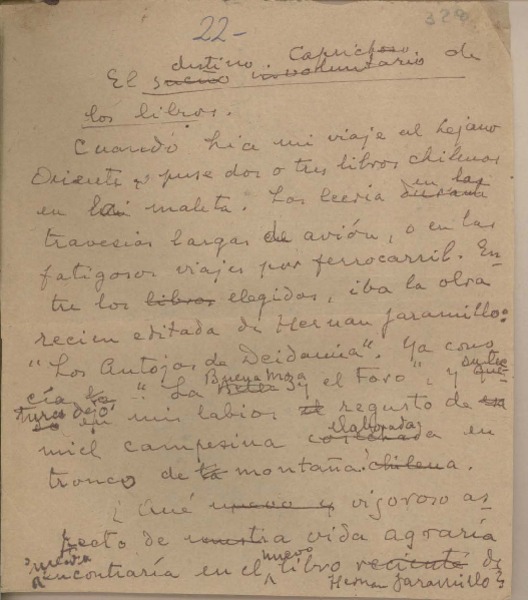 22-
328
destino. Caprichoso
El sueño involuntario de
los libros.
Cuando hia mi viaje al Lejano
Oriente, puse dos o tres libros chilenos
en mi maleta. Los leeria durante en las
travesias largas de avión, o en los
fatigosos viajes por ferrocarril. En-
tre los libros elegidos, iba la obra
recien editada de Hernan Jaramillo:
"Los Antojos de Deidamia". Ya cono
cía de "La Buena Moza y el Toro", y
dejó en mis labios el regusto de
miel campesina elaborada en
tronco de la montaña chilena.
¿Qué nuevo y vigoroso as-
pecto de nuestra vida agraria
nuestra
encontraría en el nuevo libro reciente de
Hernan Jaramillo?